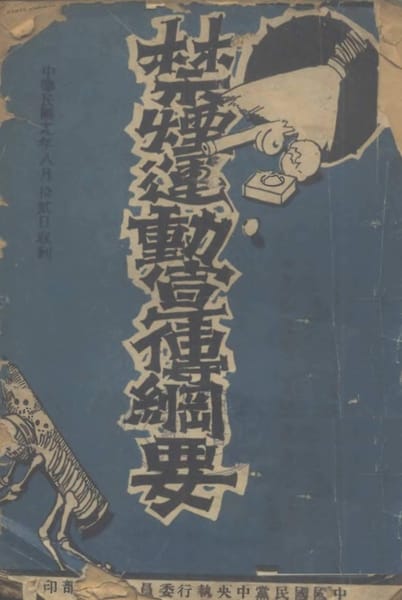 禁煙運動宣傳綱要
中華民國十九年八月拾貳日收到
中國國民黨中央執行委員 部印